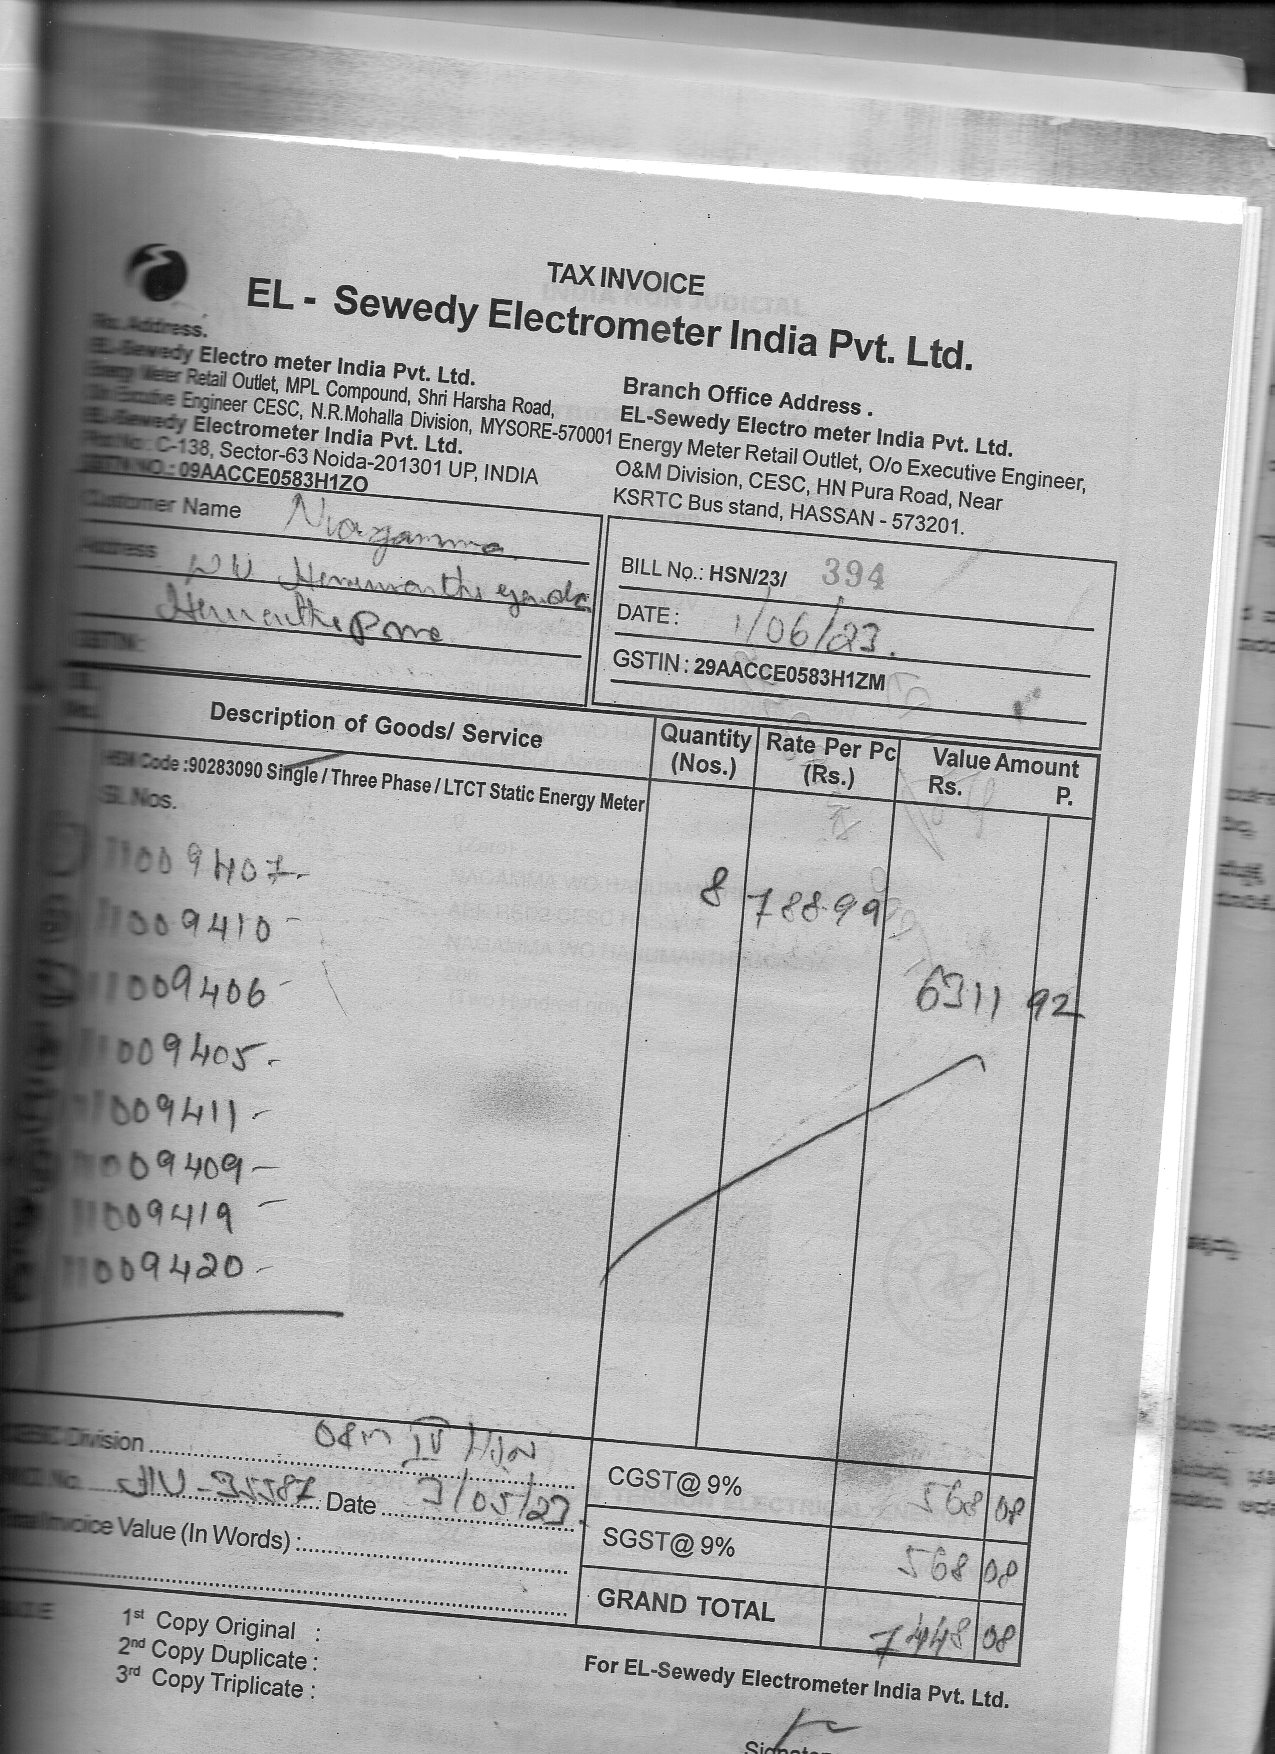 TAX INVOICE
EL - Sewedy Electrometer India Pvt. Ltd.
Address.
EL-Sewedy Electro meter India Pvt. Ltd.
Energy Meter Retail Outlet, MPL Compound, Shri Harsha Road,
Executive Engineer CESC, N.R.Mohalla Division, MYSORE-570001
EL-Sewedy Electrometer India Pvt. Ltd.
C-138, Sector-63 Noida-201301 UP, INDIA
GSTN NO.: 09AACCE0583H1ZO
Branch Office Address .
EL-Sewedy Electro meter India Pvt. Ltd.
Energy Meter Retail Outlet, O/o Executive Engineer,
O&M Division, CESC, HN Pura Road, Near
KSRTC Bus stand, HASSAN - 573201.
Customer Name
Address
GSTIN:
BILL No.: HSN/23/ 394
DATE : 1/06/23.
GSTIN : 29AACCE0583H1ZM
Description of Goods/ Service
Quantity (Nos.)
Rate Per Pc (Rs.)
Value Amount
Rs. P.
HSN Code :90283090 Single / Three Phase / LTCT Static Energy Meter
Sl. Nos.
11009407-
11009410-
11009406-
11009405-
11009411-
11009409-
11009419-
11009420-
8 788.99
6311 92
Division O&M IV HSN
Date 3/05/23.
Invoice Value (In Words) :
CGST@ 9% 568 08
SGST@ 9% 568 08
GRAND TOTAL 7448 08
1st Copy Original :
2nd Copy Duplicate :
3rd Copy Triplicate :
For EL-Sewedy Electrometer India Pvt. Ltd.